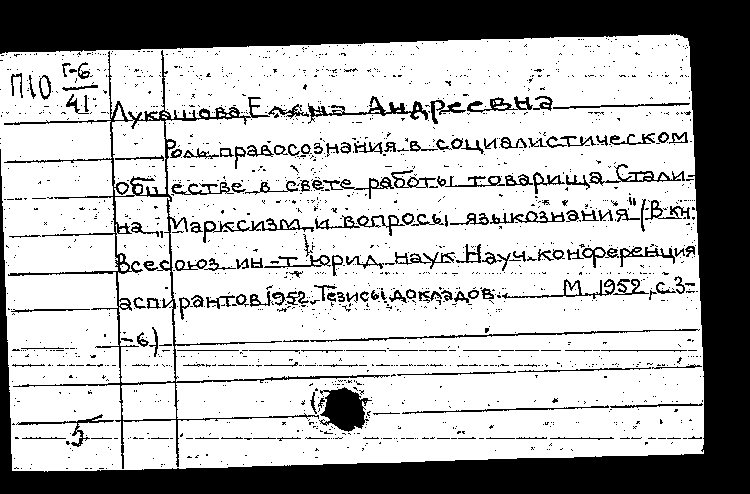 П10 Г-6
41
Лукашова, Елена Андреевна
Роль правосознания в социалистическом
обществе в свете работы товарища Стали-
на „Марксизм и вопросы языкознания" (В кн:
Всесоюз. ин-т юрид. наук. Науч. конференция
аспирантов 1952. Тезисы докладов. М., 1952, с. 3-
-6)
5